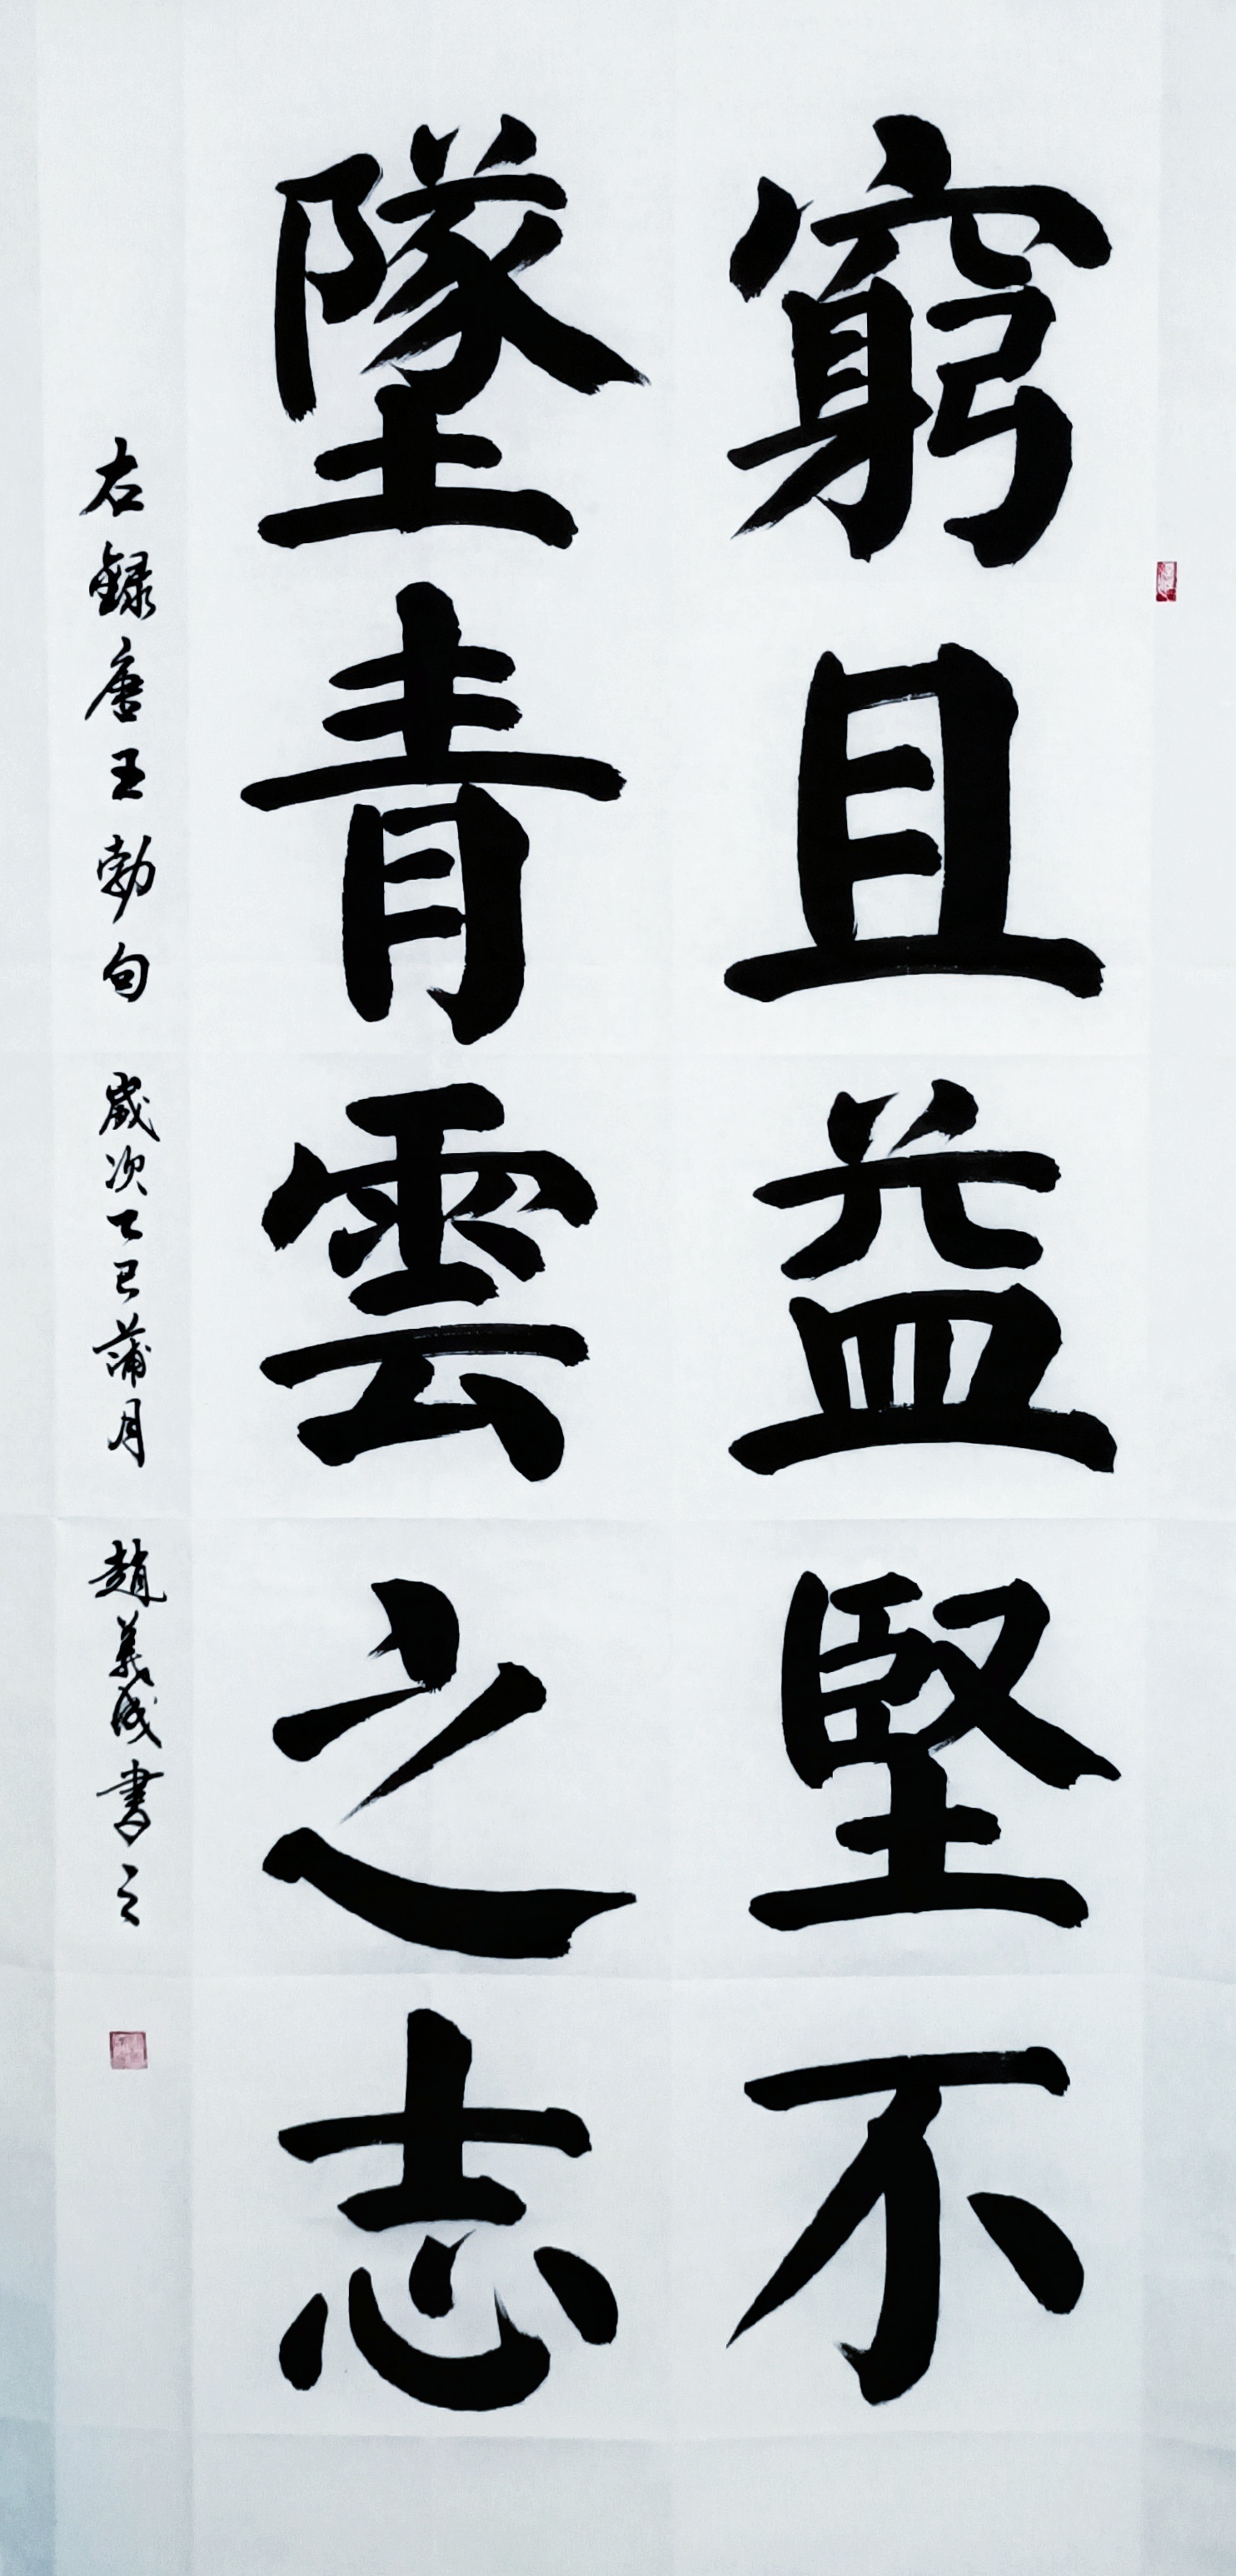 窮且益堅不
墜青雲之志
右録唐王勃句 歲次乙巳蒲月 趙義成書之